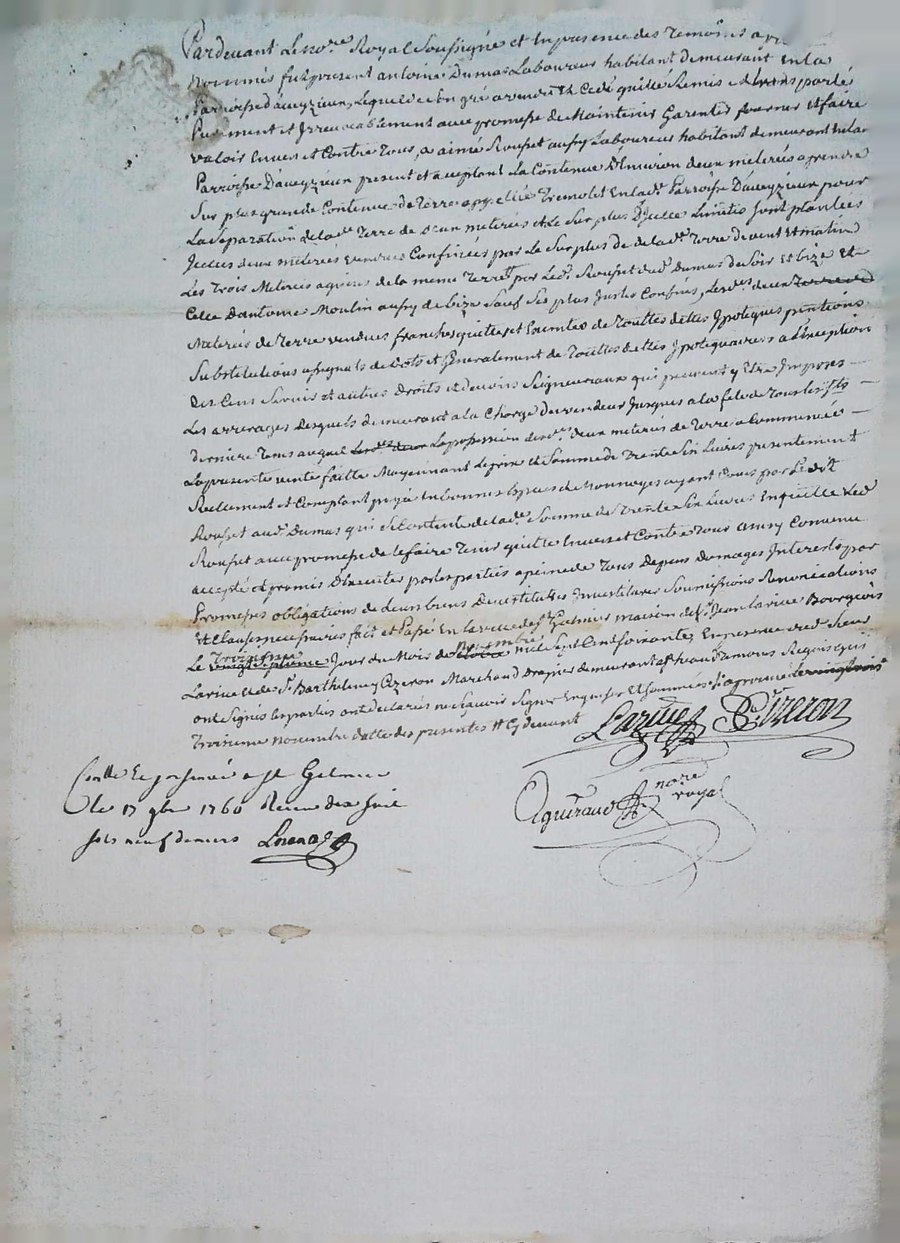 Pardevant Le no.re Royal Soussigné et En presence des Temoins a
Nommés fut present antoine Dumas Laboureur habitant demeurant En la
Parroisse D'aveyzieux, Lequel de son gré a vendu Et Cedé quitté Remis et transporté
Purement et Irrevocablement avec promesse de Maintenir Garentir fournir et faire
valoir Envers et Contre Tous, a aimé Rouset aussy Laboureur habitant demeurant En la
Parroisse D'aveyzieux present et acceptant La Contenue D'Environ deux meterés a prendre
Sur plus grande Contenue de Terre appellée Tremolet En lad.e Parroisse D'aveyzieux pour
La Separation de lad.e Terre de deux meterés et Le Surplus D'Icelle Limittes sont plantées
Icelles deux meterés vendues Confinées par Le Surplus de lad.e Terre de vent Et matin
Les Trois Meterés de la meme Terre par Led. Rouset dud. Dumas de Soir Et bize Et
Celle D'antoine Moulin aussy de bize Sauf Ses plus Justes Confins, Lesd.es deux
Meterés de Terre vendues franches quittes et Exemptes de Touttes dettes Ipoteques pentions
Substitutions de dots et Generalement de Touttes dettes Ipotequaires a L'Exception
des Cens Servis et autres Droits et devoirs Seigneuriaux qui peuvent y Etre Imposés
Les arrerages desquels demeurant a la Charge Du vendeur Jusques a la fete de Tous les Sts
derniere Tems auquel La possession desd.es deux meterés de Terre a Commencée
La presente vente faitte Moyennant Le prix Et Somme de Trente Six Livres presentement
Reellement et Comptant payée En bonnes Especes de Monnoyes ayant Cours par Le dit
Rouset aud. Dumas qui se Contente de lad.e Somme de Trente Six Livres En quitte Led.
Rouset avec promesse de le faire Tenir quitte Envers et Contre Tous ainsy Convenu
accepté et promis D'Executer par les parties a peine de Tous Depens Domages Interests par
Promesses obligations de Leurs biens Soumissions Renonciations
Et Clauses necessaires fait et Passé En la ville de St Galmier maison de S.r Jean Larive Bourgeois
Le Troisieme Jour du Mois de Novembre mil Sept Cent Soixante, En presence dud. Sieur
Larive Et de S.r Barthelemy Pizeron Marchand Drapier demeurant a Requis qui
ont Signés les parties ont declarées ne Sçavoir Signer Enquises Et Sommées
Troisieme Novembre datte des presentes Cy devant
Larive B. Pizeron
Conllé a St Galmier
Le 17 gbre 1760 Receu
sols neuf deniers
Aguiraud no.re
royal